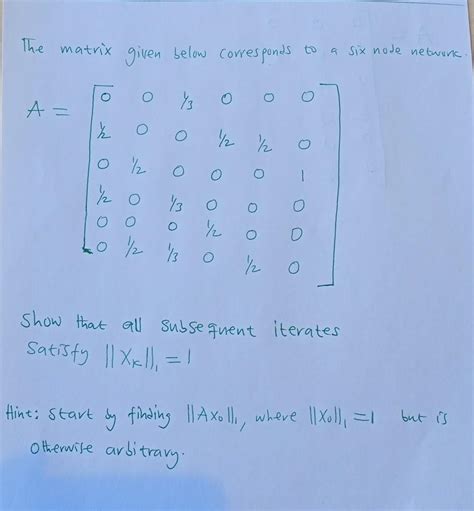 The matrix given below corresponds to a six node network.
A =
0 0 1/3 0 0 0
1/2 0 0 1/2 1/2 0
0 1/2 0 0 0 1
1/2 0 1/3 0 0 0
0 0 0 1/2 0 0
0 1/2 1/3 0 1/2 0
Show that all subsequent iterates
Satisfy ||Xk||₁ = 1
Hint: Start by finding ||AX₀||₁, where ||X₀||₁ = 1 but is
otherwise arbitrary.